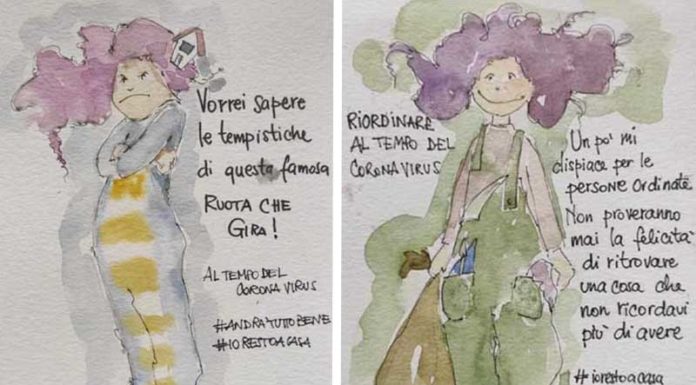 Vorrei sapere
le tempistiche
di questa famosa
RUOTA CHE
GIRA!
AL TEMPO DEL
CORONA VIRUS
#ANDRA'TUTTOBENE
#IORESTOACASA
RIORDINARE
AL TEMPO DEL
CORONA VIRUS
Un po' mi
dispiace per le
persone ordinate.
Non proveranno
mai la felicità
di ritrovare
una cosa che
non ricordavi
più di avere
#iorestoacasa